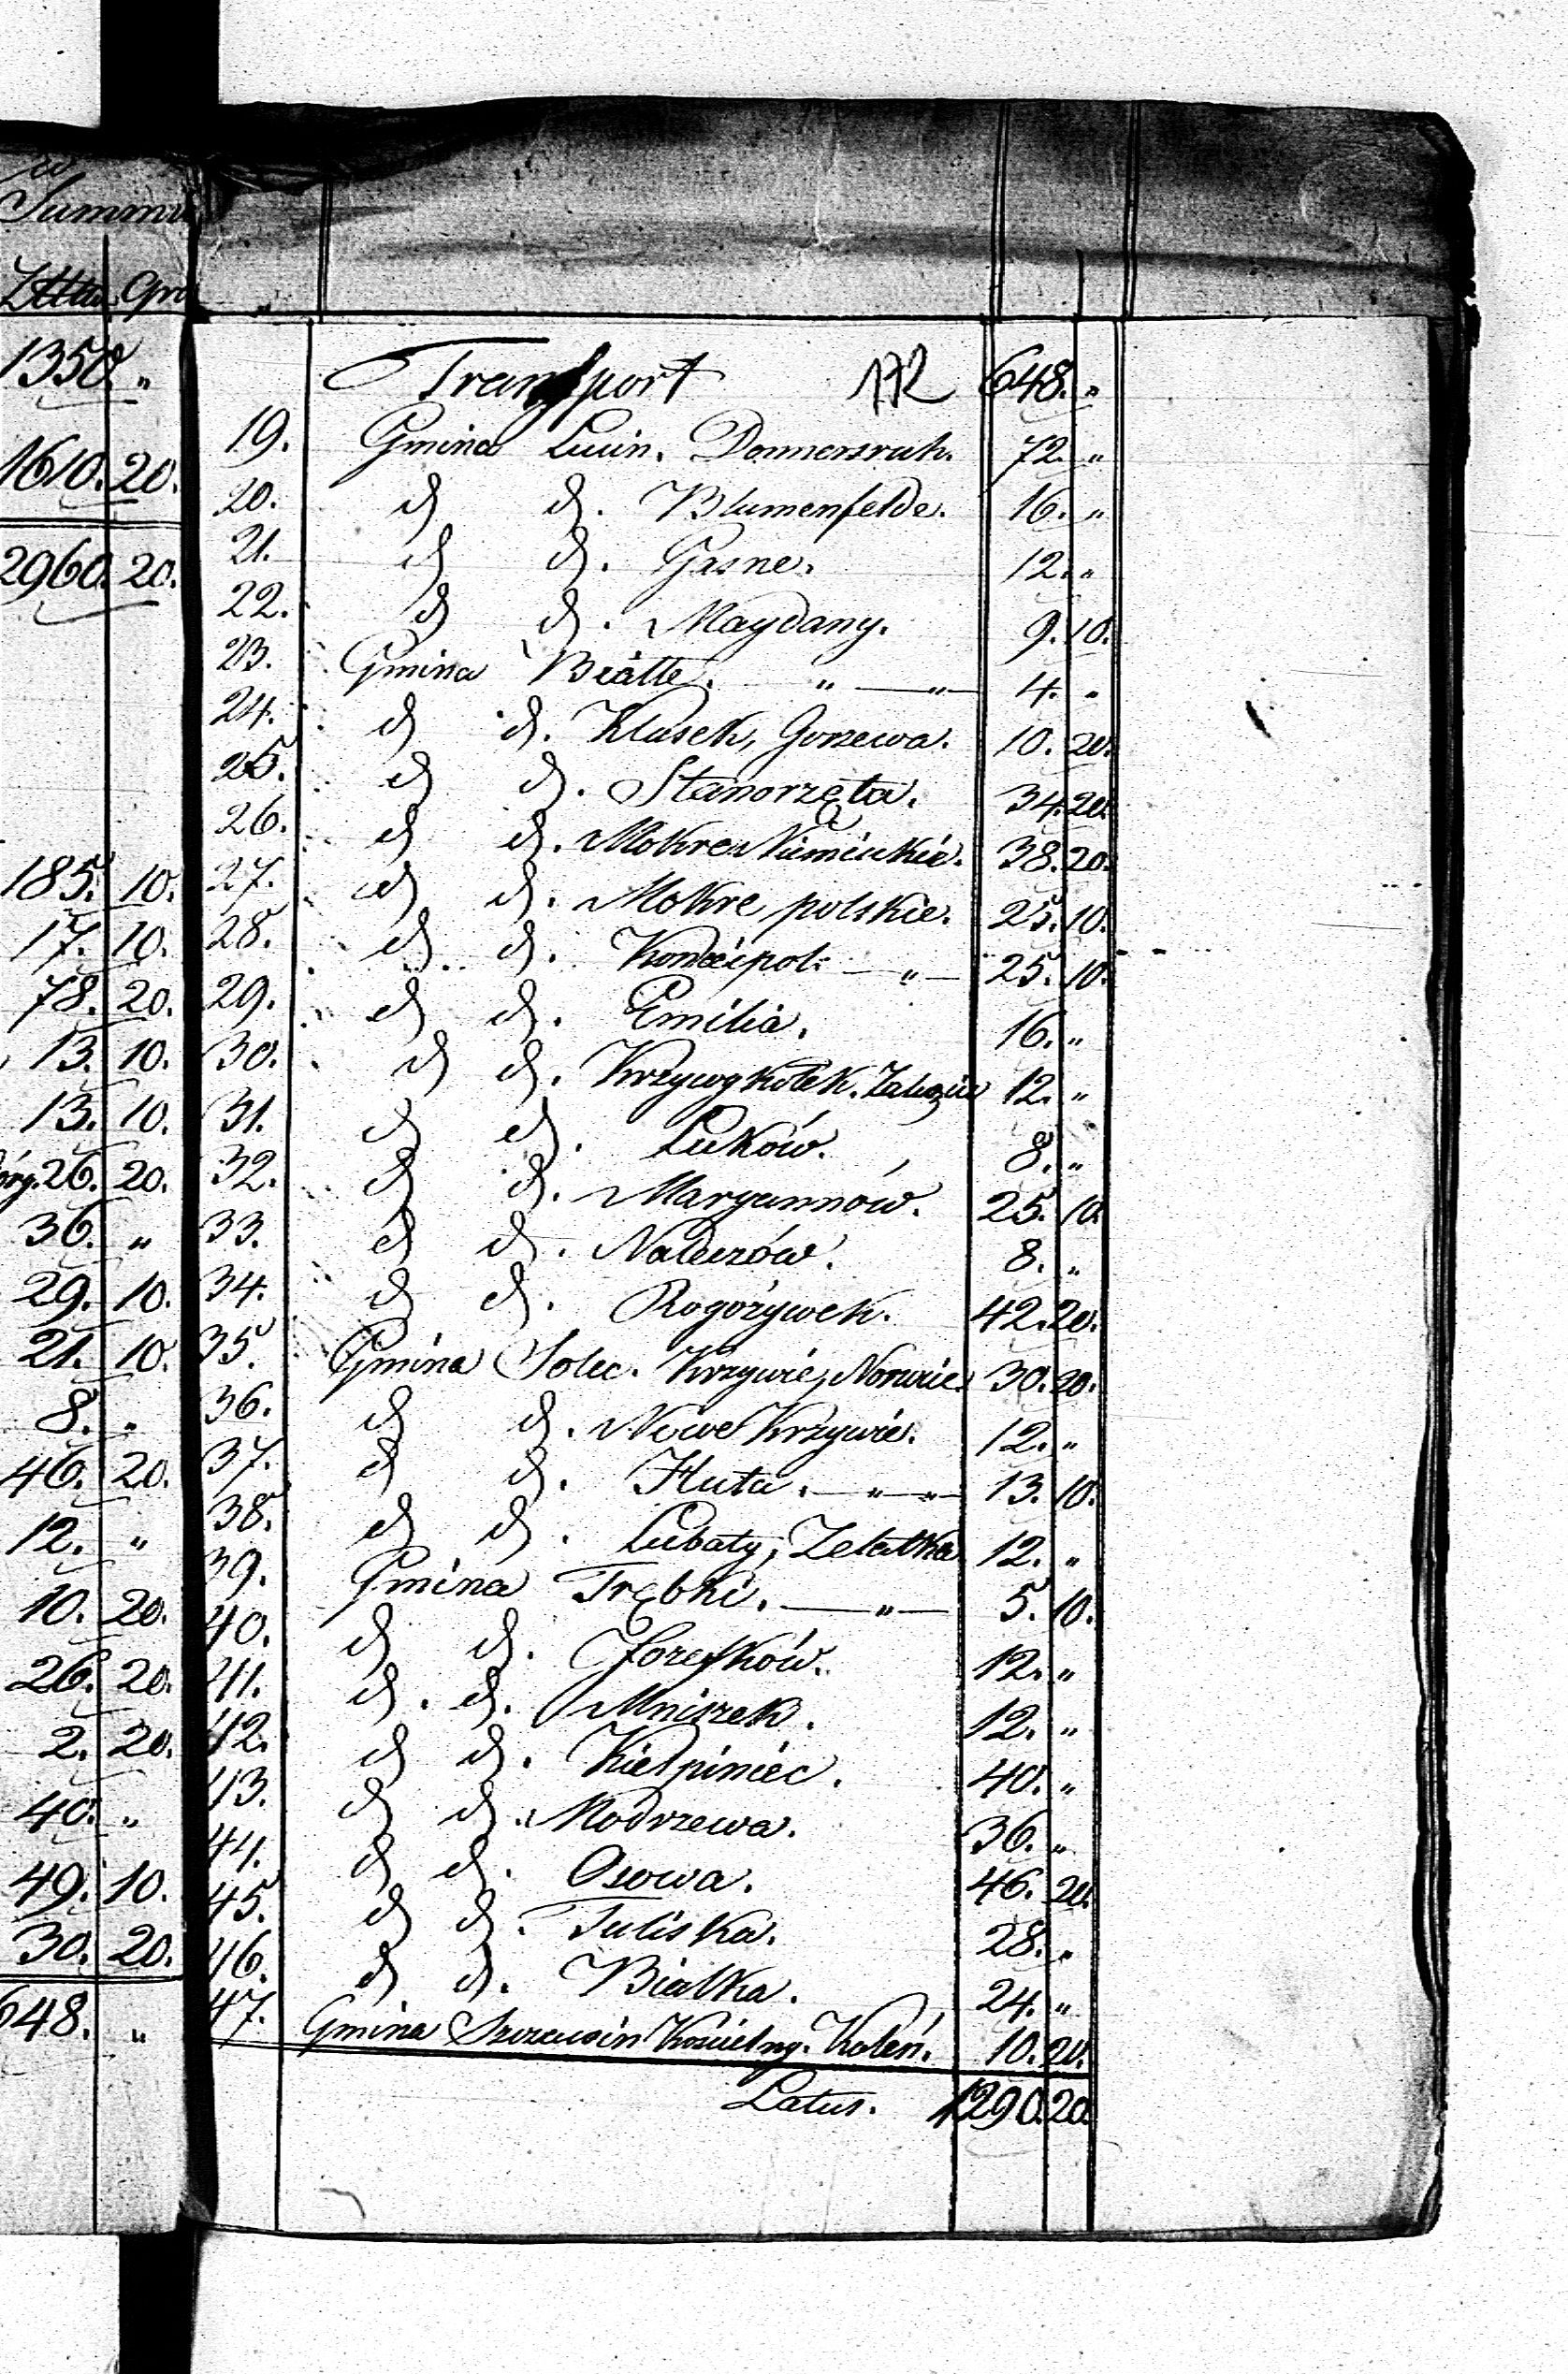 w
Summie
Złłte Gro
1350. "
1610. 20.
2960. 20.
185. 10.
17. 10.
78. 20.
13. 10.
13. 10.
26. 20.
36. "
29. 10.
21. 10.
8. "
46. 20.
12. "
10. 20.
26. 20.
2. 20.
40. "
49. 10.
30. 20.
648. "
Transport 648. "
19. Gmina Lucin. Donnersruh. 72. "
20. d d. Blumenfelde. 16. "
21. d d. Gasne. 12. "
22. d d. Maydany. 9. 10.
23. Gmina Białłe. " — " 4. "
24. d d. Klusek, Gorzewa. 10. 20.
25. d d. Stanorzęta. 34. 20.
26. d d. Mokre Niemieckie. 38. 20.
27. d d. Mokre polskie. 25. 10.
28. d d. Koniecpol. — " — 25. 10.
29. d d. Emilia. 16. "
30. d d. Krzywy kołek. 12. "
31. d d. Luków. 8. "
32. d d. Maryannów. 25. 10.
33. d d. Naduzów. 8. "
34. d d. Rogożywek. 42. 20.
35. Gmina Solec. Krzywie, 30. 20.
36. d d. Nowe Krzywie. 12. "
37. d d. Huta. — " — " 13. 10.
38. d d. Lubaty, Zelatka 12. "
39. Gmina Trębki. — " — 5. 10.
40. d d. Jozefków. 12. "
41. d. d. Mniszek. 12. "
42. d d. Kiełpiniec. 40. "
43. d d. Modrzewa. 36. "
44. d d. Osowa. 46. 20.
45. d d. Tuliska. 28. "
46. d d. Białka. 24. "
47. Gmina Szczawin Kościelny. Kaleń. 10. 20.
Latus. 1290. 20.